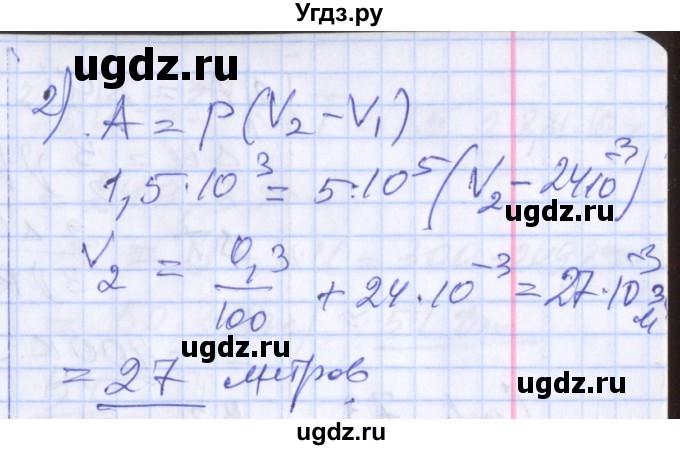 Угдз.ру
ugdz.ru
2) A = P(V₂ – V₁)
ugdz.ru
1,5·10³ = 5·10⁵(V₂ – 24·10⁻³)
ugdz.ru
V₂ = 0,3/100 + 24·10⁻³ = 27·10⁻³ м³
ugdz.ru
= 27 метров
ugdz.ru
ugdz.ru